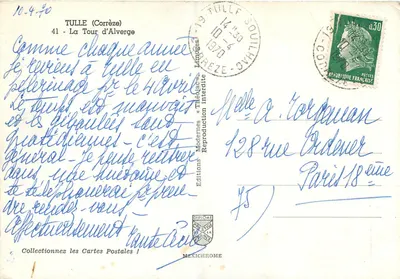 10-4-70
TULLE (Corrèze)
41 - La Tour d'Alverge
Comme chaque année
je reviens à Tulle en
pèlerinage pour le 9 Avril.
Le temps est mauvais
et les giboulées sont
quotidiennes - c'est
général - Je pense rentrer
dans une huitaine et
te téléphonerai pr prendre
rendez-vous -
Affectueusement
Tante
Collectionnez les Cartes Postales !
Editions Modernes « Théojac »
Reproduction interdite
MEXICHROME
19 TULLE SOUILHAC
14-30
10-4
1970
CORREZE
0,30
POSTES
REPUBLIQUE FRANÇAISE
Melle A.
128 rue Ordener
Paris 18ème
75